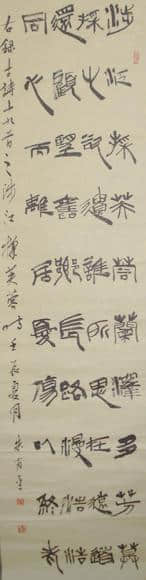 涉江採芙蓉蘭澤多芳草
採之欲遺誰所思在遠道
還顧望舊鄉長路漫浩浩
同心而離居憂傷以終老
右錄古詩十九首之涉江採芙蓉時壬辰夏月朱